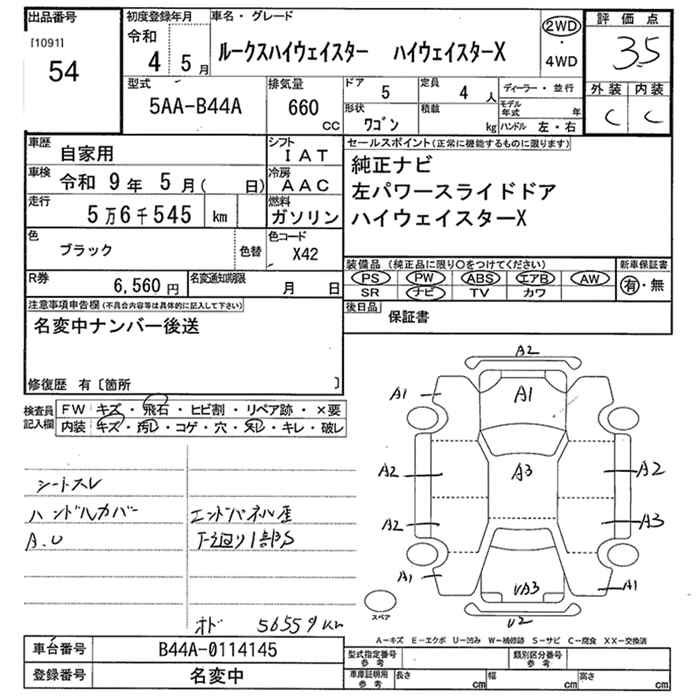 出品番号
[1091]
54
初度登録年月
令和
4 5月
車名・グレード
ルークスハイウェイスター ハイウェイスターX
2WD
・
4WD
評価点
3.5
外装 内装
C C
型式
5AA-B44A
排気量
660
cc
ドア
5
定員
4 人
形状
ワゴン
積載
kg
ディーラー・並行
モデル年式 年
ハンドル 左・右
車歴
自家用
シフト
IAT
車検
令和 9年 5月( 日)
冷房
AAC
走行
5万6千545 km
燃料
ガソリン
色
ブラック
色替
色コード
X42
R券
6,560円
名変通知期限
月 日
セールスポイント(正常に機能するものに限ります)
純正ナビ
左パワースライドドア
ハイウェイスターX
装備品(純正品に限り○をつけてください)
PS PW ABS エアB AW
SR ナビ TV カワ
新車保証書
有・無
後日品
保証書
注意事項申告欄(不具合内容等は具体的に記入して下さい)
名変中ナンバー後送
修復歴 有〔箇所 〕
検査員
記入欄
FW キズ・飛石・ヒビ割・リペア跡・×要
内装 キズ・汚レ・コゲ・穴・スレ・キレ・破レ
シートスレ
ハンドルカバー
A.U
エンドパネル歪
下廻り1部S
オド 56559km
A2
A1
A1
A2
A3
A2
A2
A3
A1
UA3
A1
U2
スペア
A-キズ E-エクボ U-凹み W-補修跡 S-サビ C-腐食 XX-交換済
車台番号
B44A-0114145
登録番号
名変中
型式指定番号
参考
類別区分番号
参考
車庫証明用
参考
長さ cm
幅 cm
高さ cm